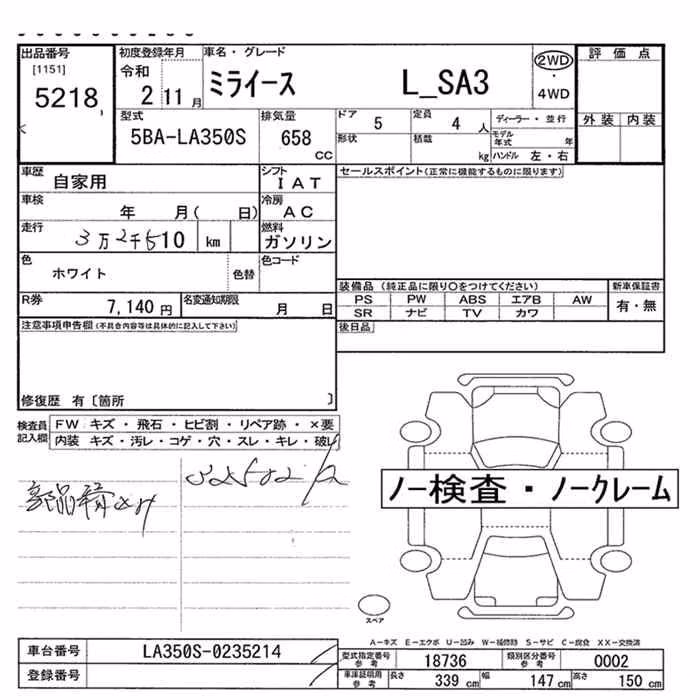 出品番号 初度登録年月 車名・グレード 評価点
[1151] 令和 2WD
5218 2 11月 ミライース L_SA3 ・
4WD
型式 排気量 ドア 5 定員 4 人 ディーラー・並行 外装 内装
5BA-LA350S 658 cc 形状 積載 kg モデル年式 年
ハンドル 左・右
車歴 自家用 シフト IAT セールスポイント(正常に機能するものに限ります)
車検 年 月( 日) 冷房 AC
走行 3万2千510 km 燃料 ガソリン
色 ホワイト 色替 色コード
装備品 (純正品に限り○をつけてください) 新車保証書
R券 7,140円 名変通知期限 月 日 PS PW ABS エアB AW 有・無
SR ナビ TV カワ
注意事項申告欄(不具合内容等は具体的に記入して下さい) 後日品
修復歴 有〔箇所 〕
検査員記入欄 FW キズ・飛石・ヒビ割・リペア跡・×要
内装 キズ・汚レ・コゲ・穴・スレ・キレ・破レ
32502
ノー検査・ノークレーム
スペア
A-キズ E-エクボ U-凹み W-補修跡 S-サビ C-腐食 XX-交換済
車台番号 LA350S-0235214 型式指定番号 参考 18736 類別区分番号 参考 0002
登録番号 車庫証明用 参考 長さ 339 cm 幅 147 cm 高さ 150 cm